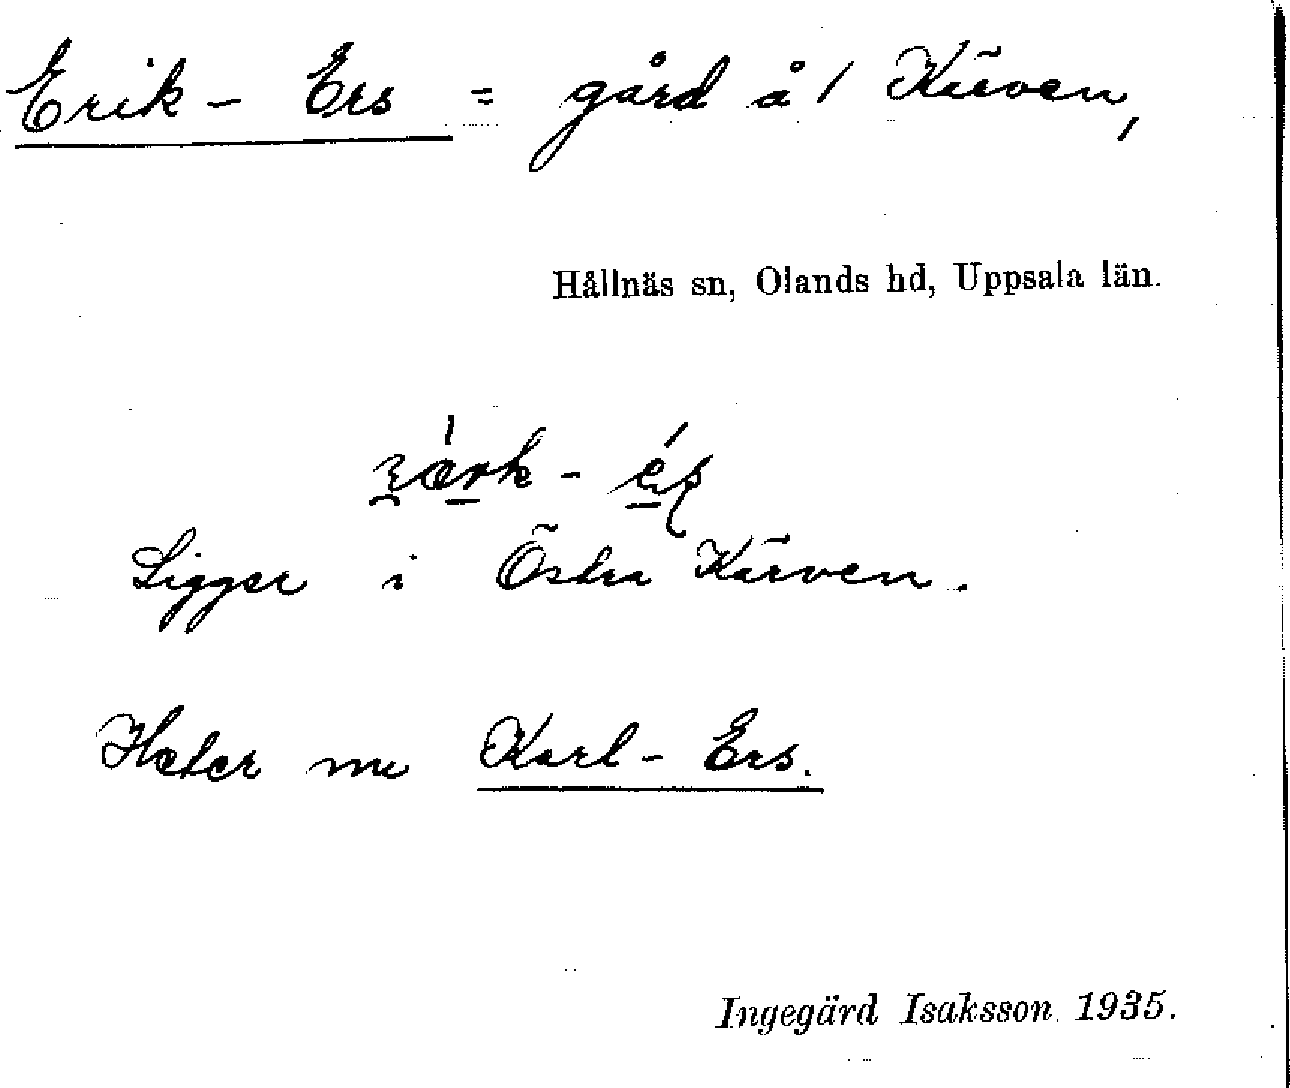 Erik-Ers = gård å/ Kärven,
Hållnäs sn, Olands hd, Uppsala län.
Ligger i Östra Kärven.
Heter nu Karl-Ers.
Ingegärd Isaksson 1935.